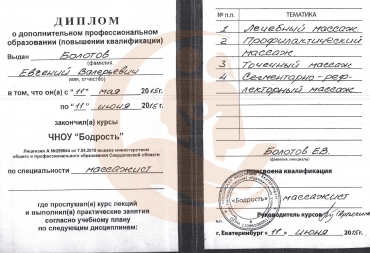 ДИПЛОМ
о дополнительном профессиональном
образовании (повышении квалификации)
Выдан Болотов
(фамилия,
Евгений Валерьевич
имя, отчество)
в том, что он(а) с "11" мая 2015г.
по "11" июня 2015г.
закончил(а) курсы
ЧНОУ "Бодрость"
Лицензия А №299044 от 7.04.2010 выдана министерством
общего и профессионального образования Свердловской области
по специальности массажист
где прослушал(а) курс лекций
и выполнил(а) практические занятия
согласно учебному плану
по следующим дисциплинам:
№ п.п. ТЕМАТИКА
1 Лечебный массаж
2 Профилактический
массаж
3 Точечный массаж
4 Сегментарно-реф-
лекторный массаж
Болотов Е.В.
(фамилия, инициалы)
присвоена квалификация
массажист
«Бодрость»
Руководитель курсов
г. Екатеринбург "11" июня 2015г.